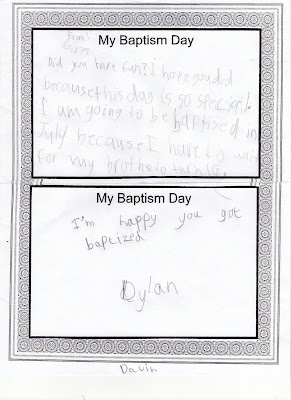 My Baptism Day
Did you have fun? I hope you did
because this day is so special.
I am going to be baptised in
July because I have to wait
for my brother to turn
My Baptism Day
I'm happy you got
baptized
Dylan